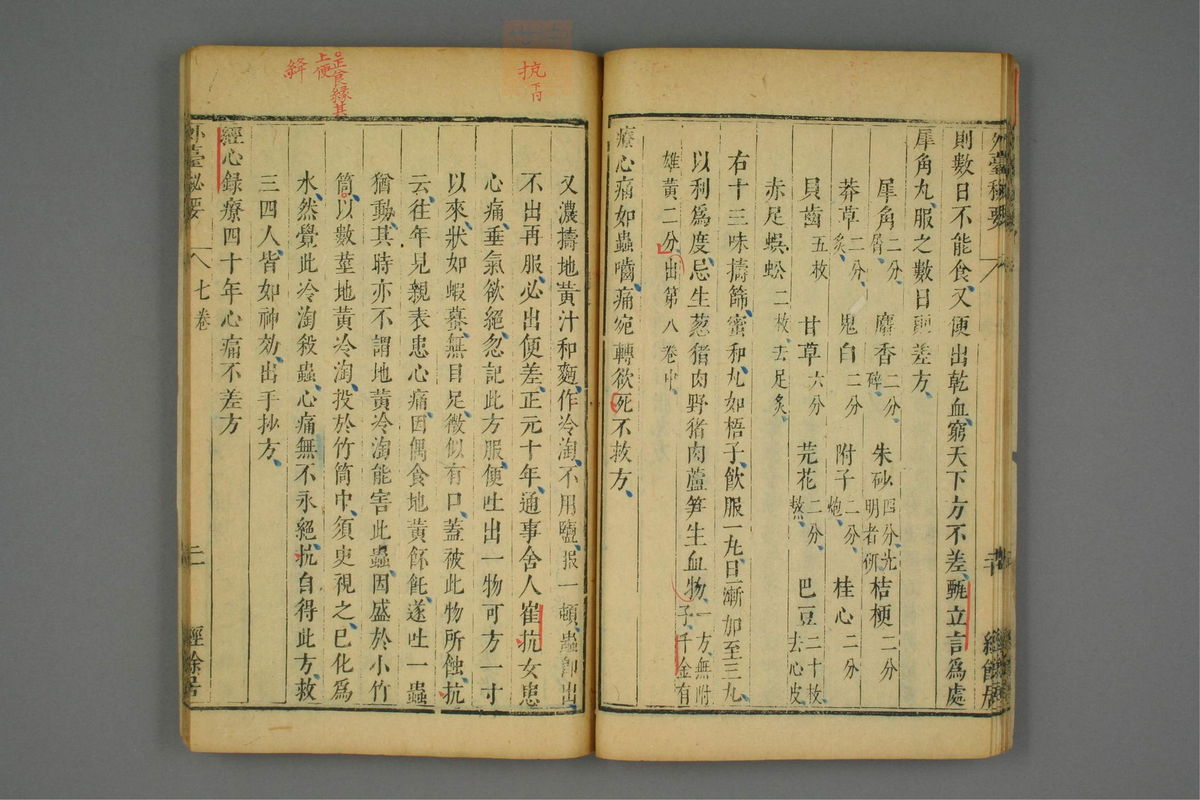 外臺秘要
則數日不能食、又便出乾血、窮天下方不差、甄立言爲處
犀角丸服之數日卽差方、
犀角二分、屑 麝香二分、碎 朱砂四分、光明者研 桔梗二分
莽草二分、炙 鬼臼二分 附子二分、炮 桂心二分
貝齒五枚 甘草六分 芫花二分、熬 巴豆二十枚、去心皮
赤足蜈蚣二枚、去足炙、
右十三味擣篩、蜜和、丸如梧子、飲服一丸、日二漸加至三丸、
以利爲度、忌生葱猪肉野猪肉蘆笋生血物、一方、無附子、千金有
雄黃二分、出第八卷中、
療心痛如蟲嚙、痛宛轉欲死不救方、
經餘居
又濃擣地黃汁和麵、作冷淘、不用鹽、服一頓、蟲卽出、
不出再服、必出便差、正元十年、通事舍人崔抗女患
心痛、垂氣欲絕、忽記此方服、便吐出一物可方一寸
以來、狀如蝦蟇、無目足、微似有口、蓋被此物所蝕、抗
云、往年見親表患心痛、因偶食地黃餺飥、遂吐一蟲
猶動、其時亦不謂地黃冷淘能害此蟲、因盛於小竹
筒、以數莖地黃冷淘、投於竹筒中、須臾視之、已化爲
水、然覺此冷淘殺蟲、心痛無不永絕、抗自得此方、救
三四人、皆如神効、出手抄方、
經心錄療四十年心痛不差方
外臺秘要 七卷 二 經餘居
抗
下同
是食緣其
上便
絳